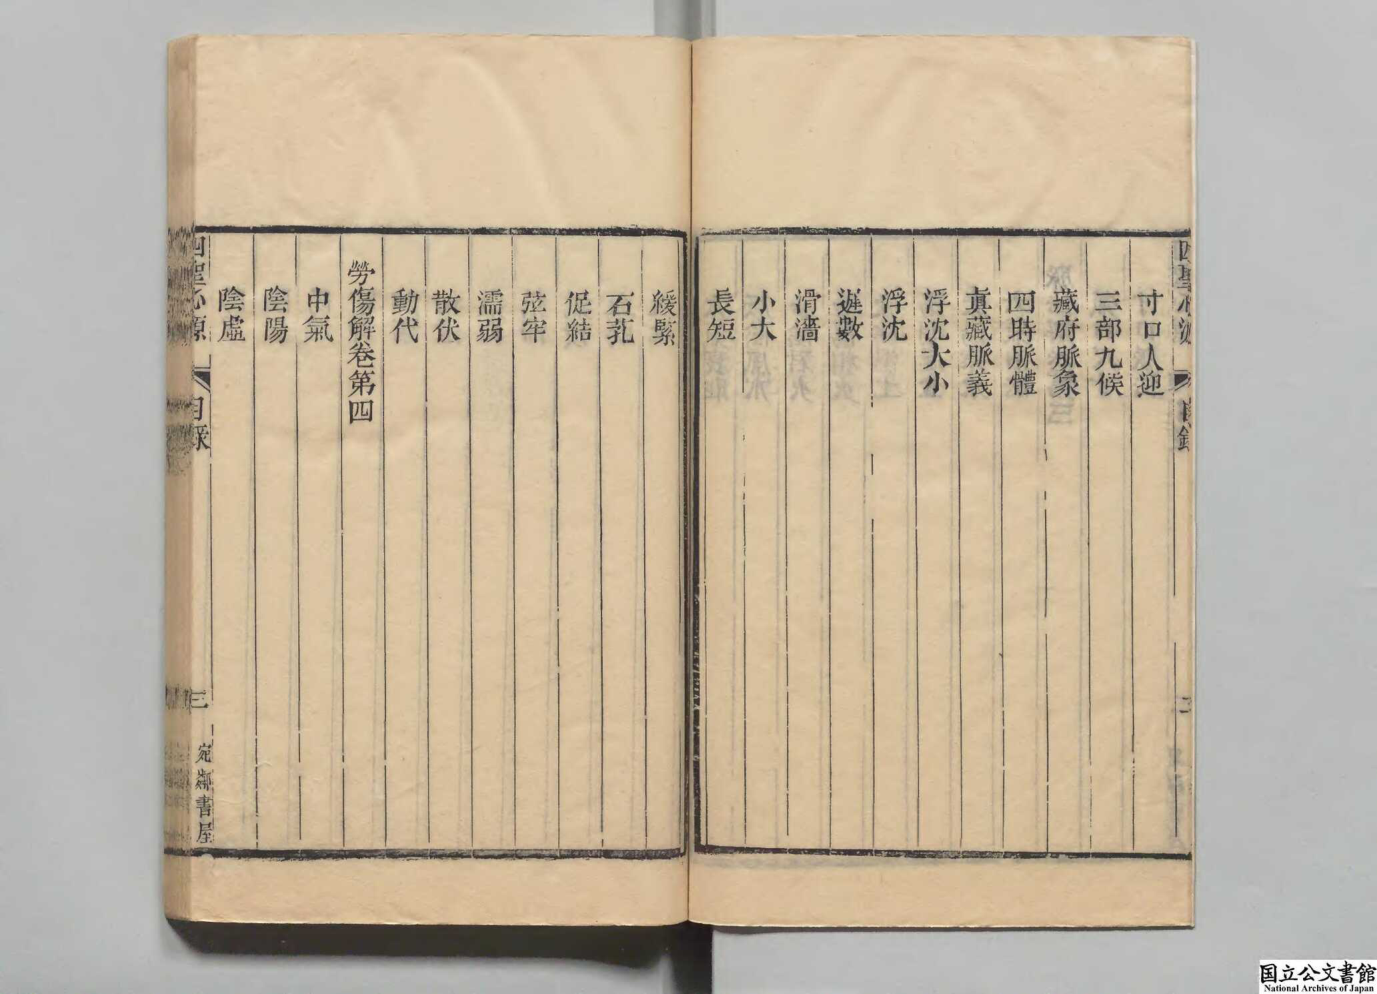 四聖心源
目錄
二
寸口人迎
三部九候
藏府脈象
四時脈體
真藏脈義
浮沈大小
浮沈
遲數
滑濇
小大
長短
緩緊
石芤
促結
弦牢
濡弱
散伏
動代
勞傷解卷第四
中氣
陰陽
陰虛
四聖心源
目錄
三
宛鄰書屋
国立公文書館
National Archives of Japan